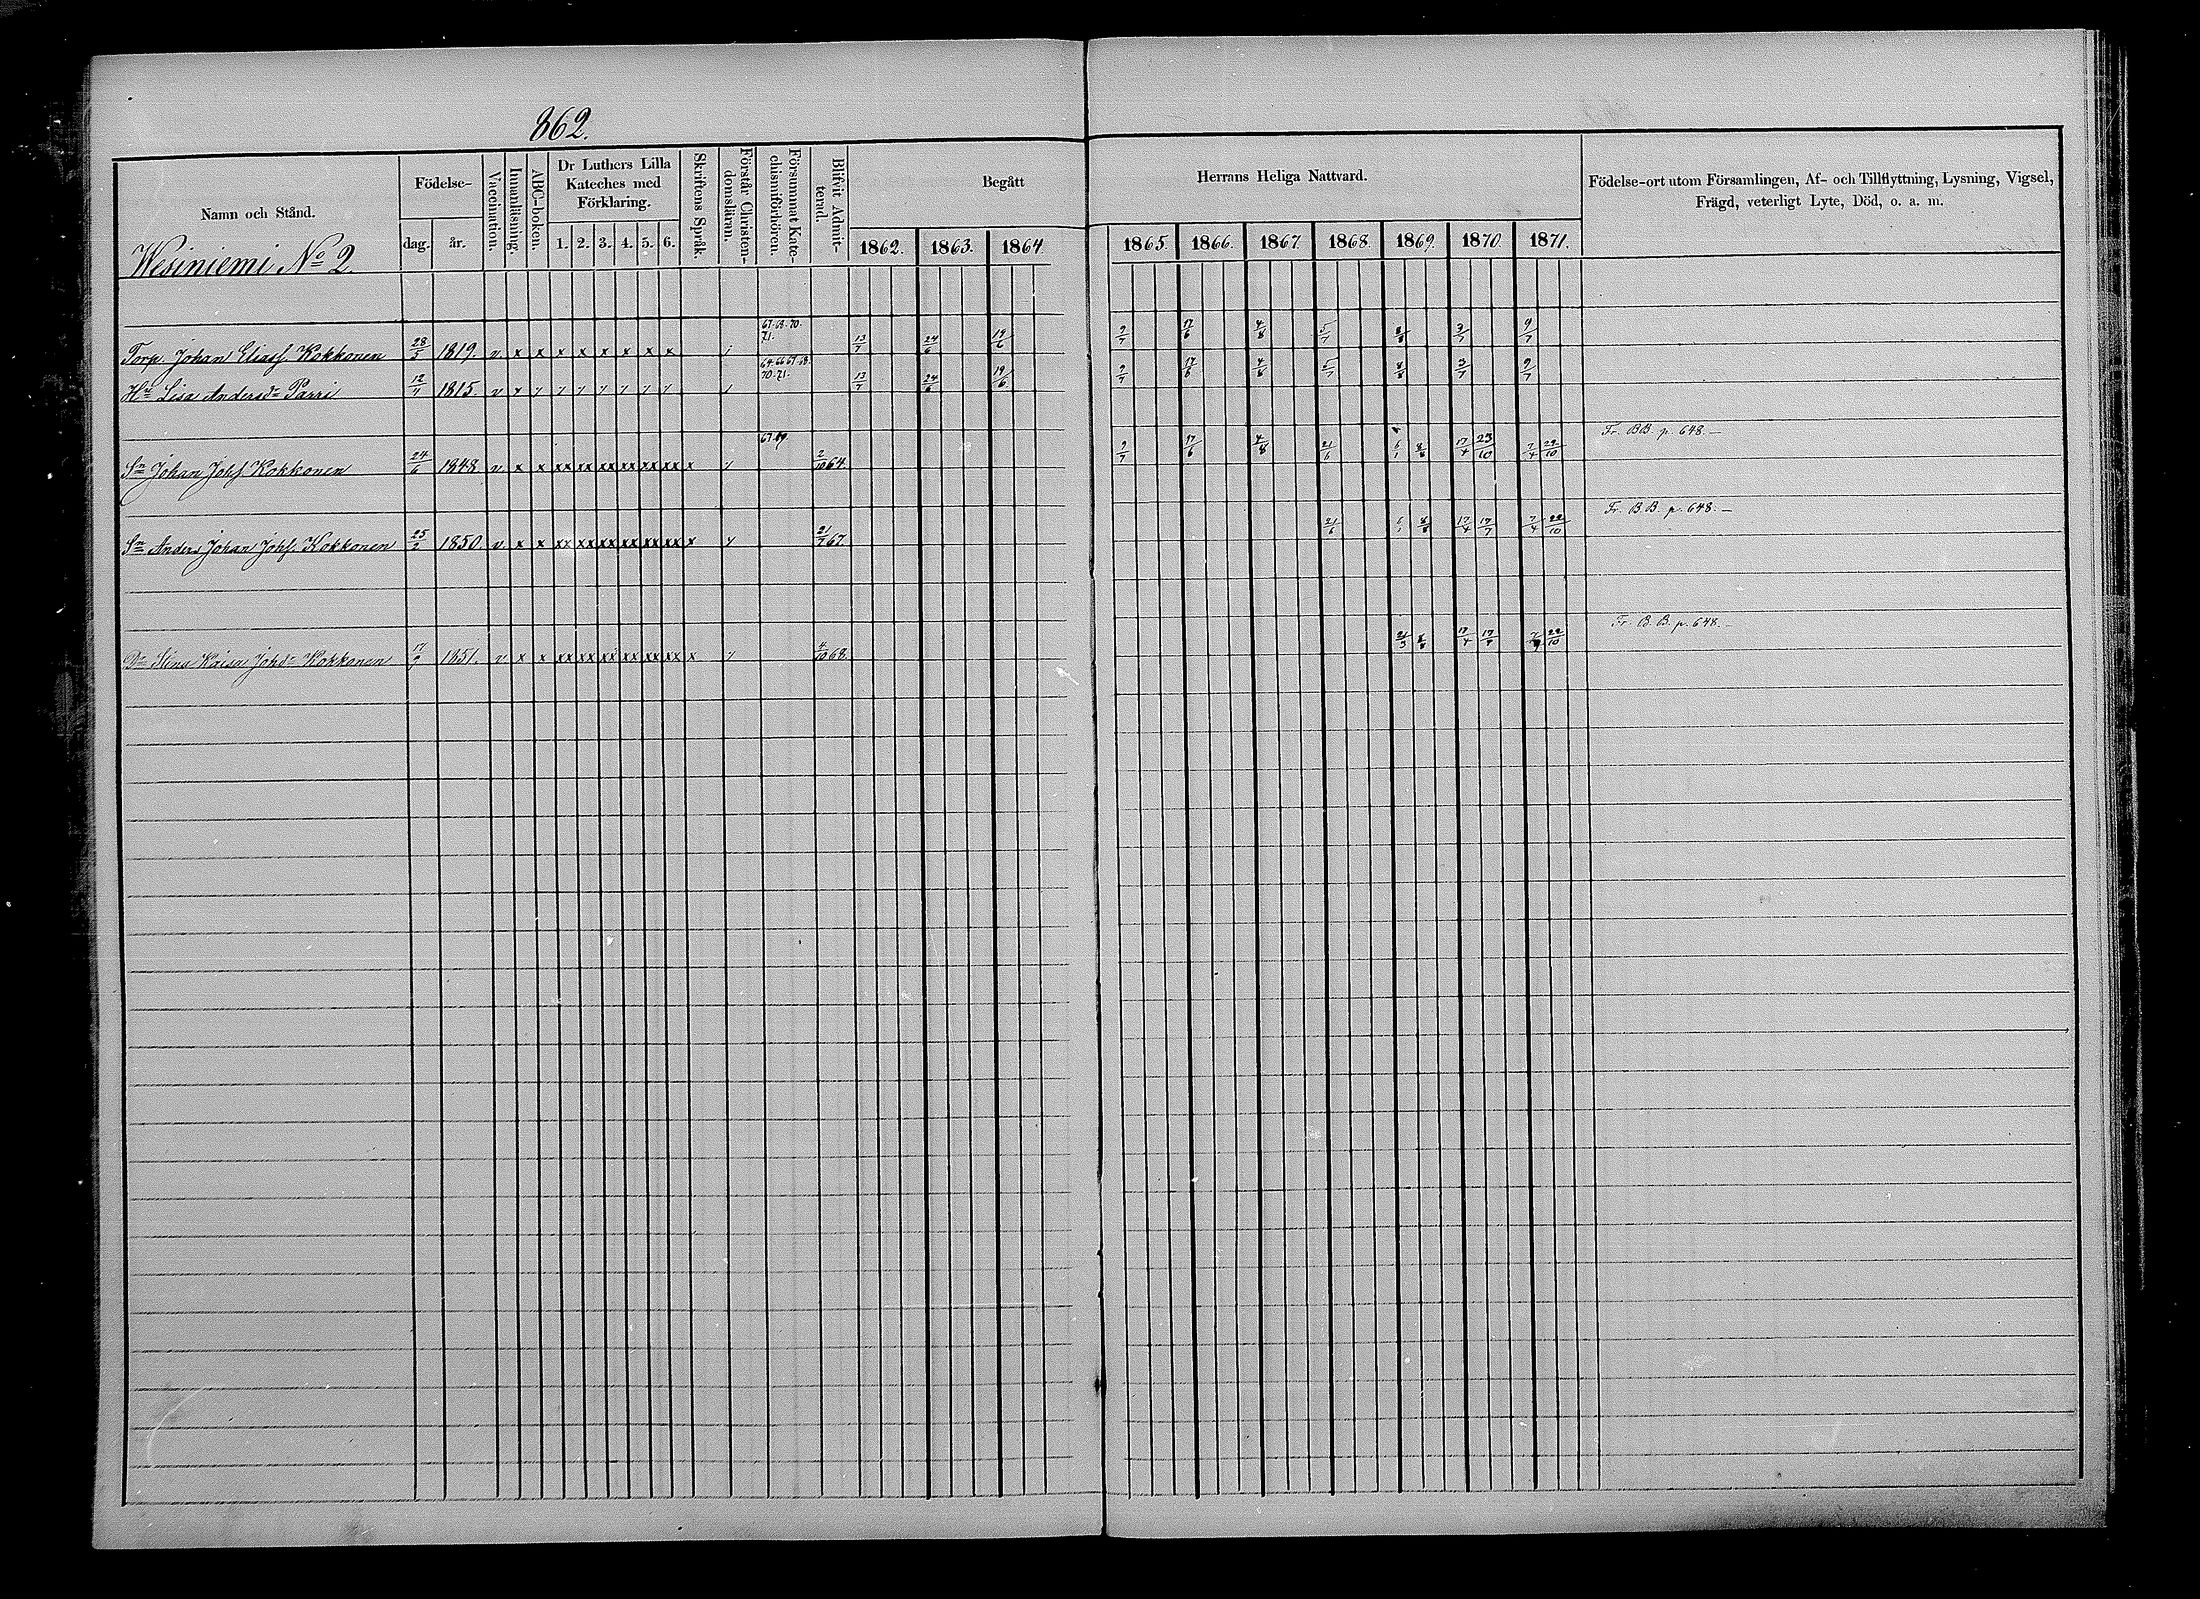 862.
Namn och Stånd. Födelse- dag. år. Vaccination. Innanläsning. ABC-boken. Dr Luthers Lilla Kateches med Förklaring. 1. 2. 3. 4. 5. 6. Skriftens Språk. Förstår Christendomsläran. Försummat Katechismiförhören. Blifvit Admitterad. Begått Herrans Heliga Nattvard. 1862. 1863. 1864 1865. 1866. 1867. 1868 1869. 1870. 1871. Födelse-ort utom Församlingen, Af- och Tillflyttning, Lysning, Vigsel, Frägd, veterligt Lyte, Död, o. a. m.
Wesiniemi No 2.
67. 68. 70.
71.
Torp. Johan Eliass. Kokkonen 28/5 1819. v x x x x x x x x / 13/7 24/6 19/6 9/7 17/6 4/8 5/7 8/8 3/7 9/7
64. 66 67. 68.
70. 71.
Hu Lisa Andersdr Parri 12/7 1815. v 13/7 24/6 19/6 9/7 17/6 4/8 5/7 8/8 3/7 9/7
Fr. BB. p. 648. —
Sn Johan Johs. Kokkonen 24/6 1848. v x x xx xx xx xx xx xx x 2/10 64. 9/7 17/6 4/8 21/6 6/1 8/8 17/4 23/10 7/4 22/10
Fr. B.B. p. 648. —
Sn Anders Johan Johs. Kokkonen 25/2 1850. v x x xx xx xx xx xx xx x 21/7 67. 21/6 6/1 8/8 17/4 17/7 7/4 22/10
Fr. B. B. p. 648. —
Dr Stina Kaisa Johsdr Kokkonen 17/9 1851. v x x xx xx xx xx xx xx x 4/10 68. 21/3 8/8 17/4 17/7 22/10